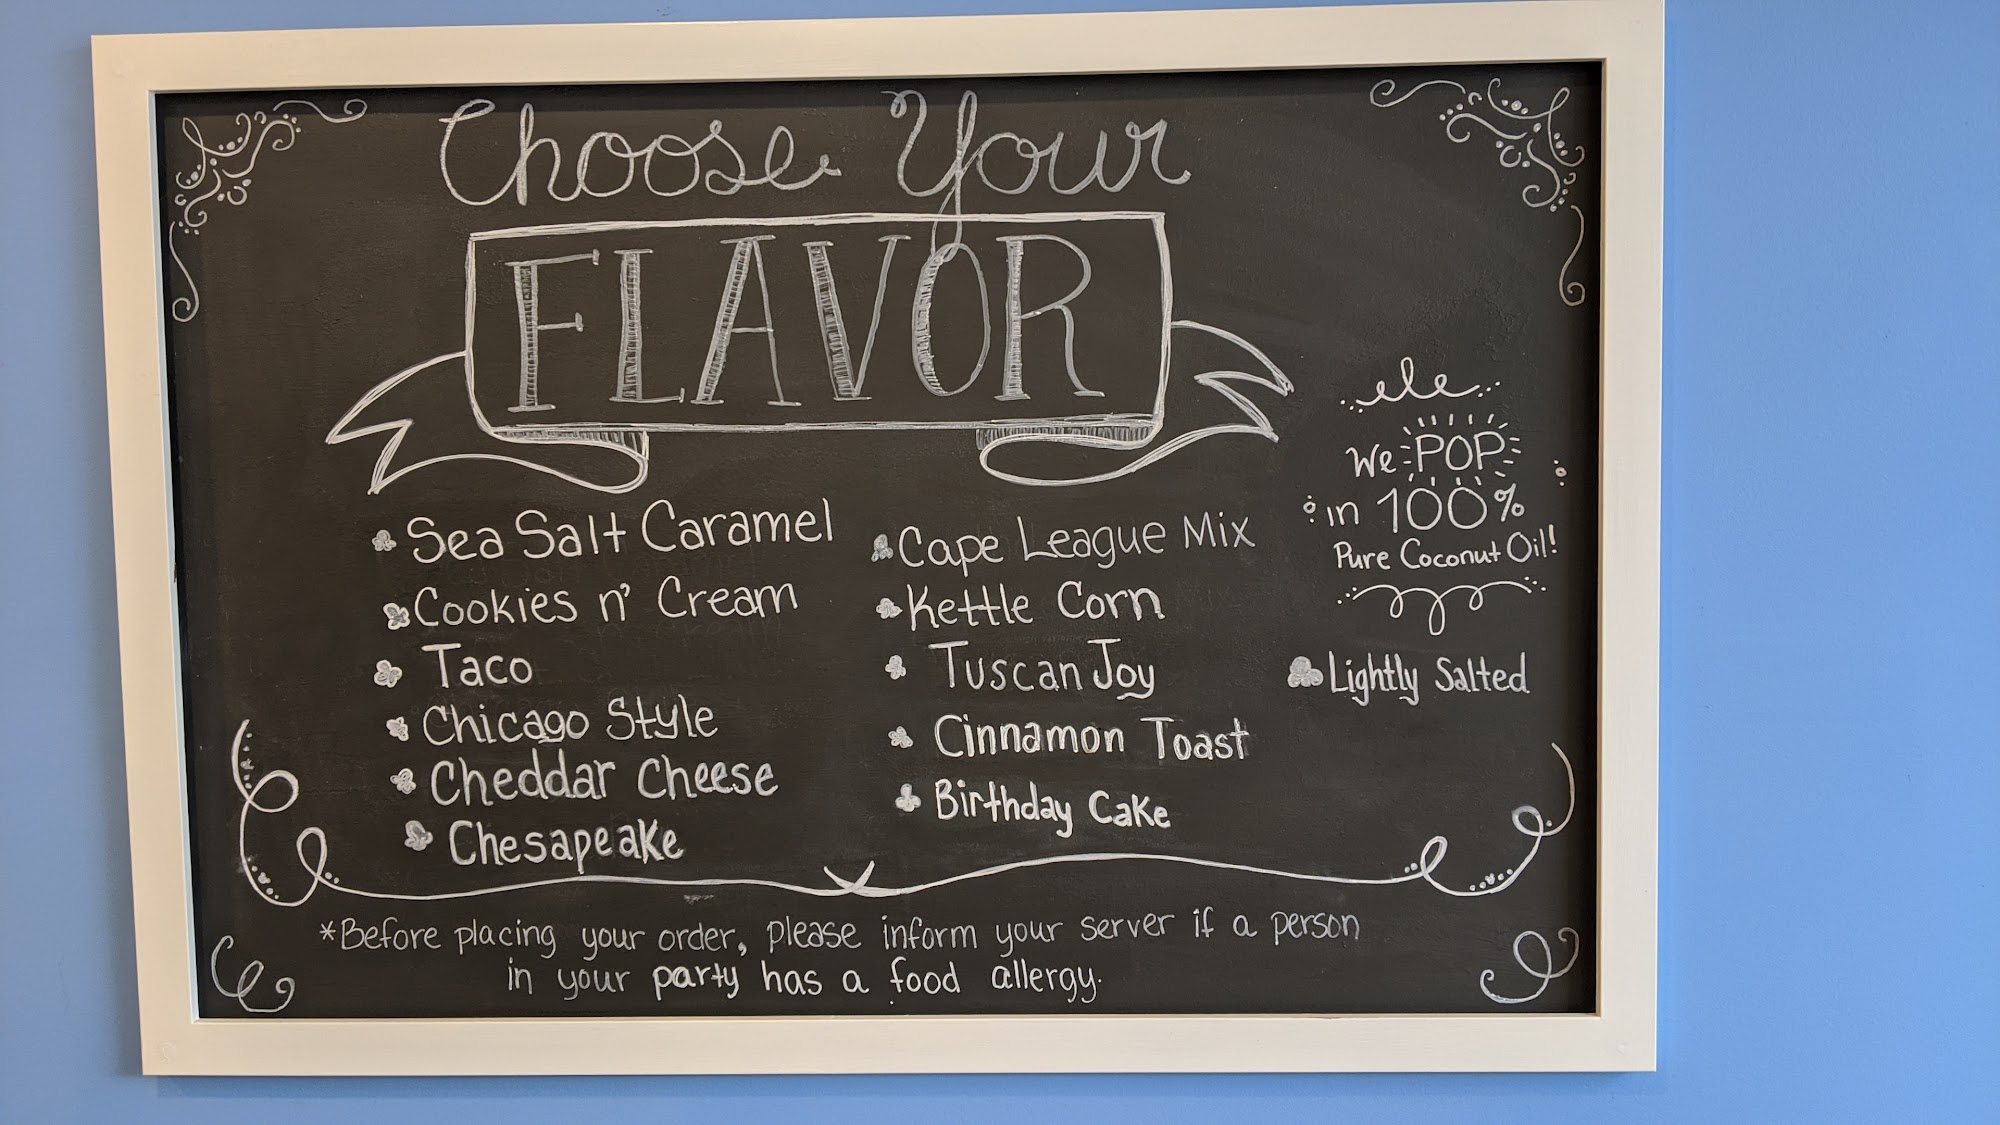 Choose Your
FLAVOR
Sea Salt Caramel
Cookies n' Cream
Taco
Chicago Style
Cheddar Cheese
Chesapeake
Cape League Mix
Kettle Corn
Tuscan Joy
Cinnamon Toast
Birthday Cake
We POP
in 100%
Pure Coconut Oil!
Lightly Salted
*Before placing your order, please inform your server if a person
in your party has a food allergy.